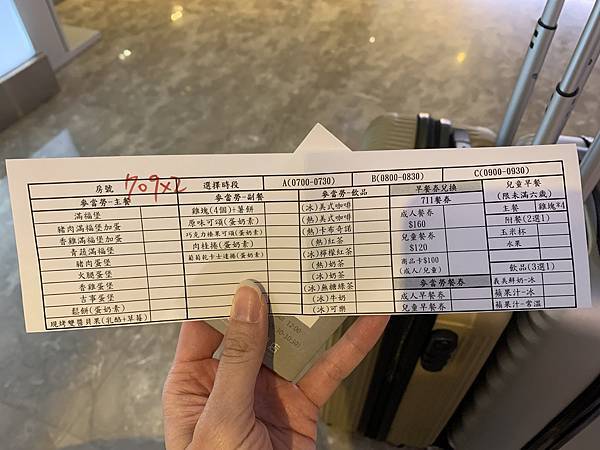 房號 709x2 選擇時段 A(0700-0730) B(0800-0830) C(0900-0930) 兒童早餐
(限未滿六歲)
麥當勞-主餐 麥當勞-副餐 麥當勞-飲品 早餐券兌換
滿福堡 雞塊(4個)+薯餅 (冰)美式咖啡 711餐券 主餐 雞塊*4
豬肉滿福堡加蛋 原味可頌(蛋奶素) (熱)美式咖啡 成人餐券 附餐(2選1)
$160
香雞滿福堡加蛋 巧克力榛果可頌(蛋奶素) (熱)卡布奇諾 玉米杯
青蔬滿福堡 肉桂捲(蛋奶素) (熱)紅茶 兒童餐券 水果
$120
豬肉蛋堡 葡萄乾卡士達捲(蛋奶素) (冰)檸檬紅茶
火腿蛋堡 (熱)奶茶 商品卡$100
(成人/兒童) 飲品(3選1)
香雞蛋堡 (冰)奶茶
吉事蛋堡 (冰)無糖綠茶 麥當勞餐券 義美鮮奶-冰
鬆餅(蛋奶素) (冰)牛奶 成人早餐券 蘋果汁-冰
現烤雙醬貝果(乳酪+草莓) (冰)可樂 兒童早餐券 蘋果汁-常溫
12:00